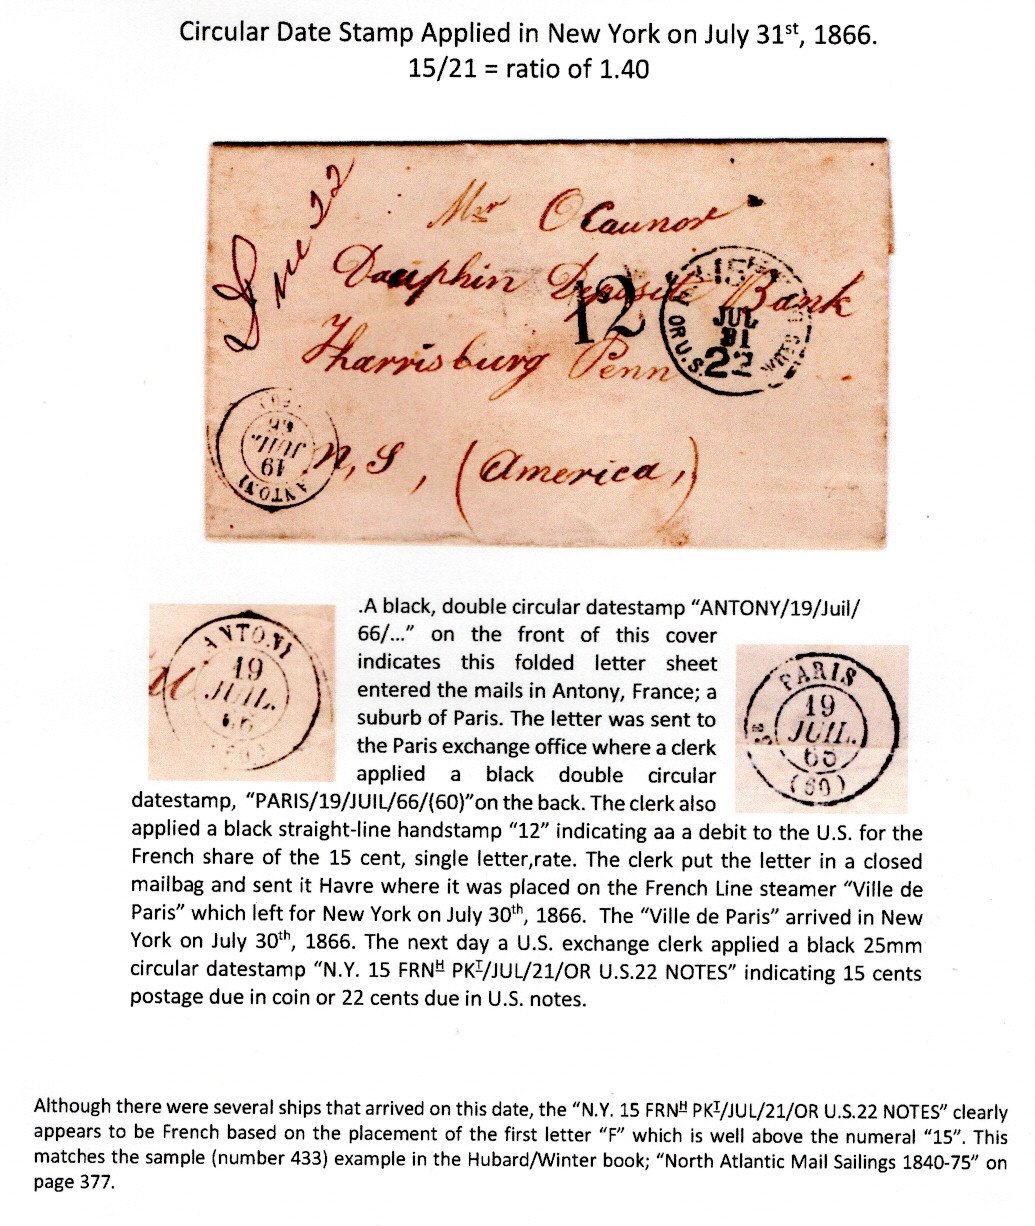 Circular Date Stamp Applied in New York on July 31st, 1866.
15/21 = ratio of 1.40
Due 22
Mr OCaunor
Dauphin Deposit Bank
12
15
JUL
31
OR U.S.
22
Harrisburg Penn
66
JUIL
19
ANTONY
N, S, (America,)
ANTONY
19
JUIL.
66
PARIS
19
JUIL.
66
(60)
.A black, double circular datestamp “ANTONY/19/Juil/
66/...” on the front of this cover
indicates this folded letter sheet
entered the mails in Antony, France; a
suburb of Paris. The letter was sent to
the Paris exchange office where a clerk
applied a black double circular
datestamp, “PARIS/19/JUIL/66/(60)”on the back. The clerk also
applied a black straight-line handstamp “12” indicating aa a debit to the U.S. for the
French share of the 15 cent, single letter,rate. The clerk put the letter in a closed
mailbag and sent it Havre where it was placed on the French Line steamer “Ville de
Paris” which left for New York on July 30th, 1866. The “Ville de Paris” arrived in New
York on July 30th, 1866. The next day a U.S. exchange clerk applied a black 25mm
circular datestamp “N.Y. 15 FRNH PKT/JUL/21/OR U.S.22 NOTES” indicating 15 cents
postage due in coin or 22 cents due in U.S. notes.
Although there were several ships that arrived on this date, the “N.Y. 15 FRNH PKT/JUL/21/OR U.S.22 NOTES” clearly
appears to be French based on the placement of the first letter “F” which is well above the numeral “15”. This
matches the sample (number 433) example in the Hubard/Winter book; “North Atlantic Mail Sailings 1840-75” on
page 377.